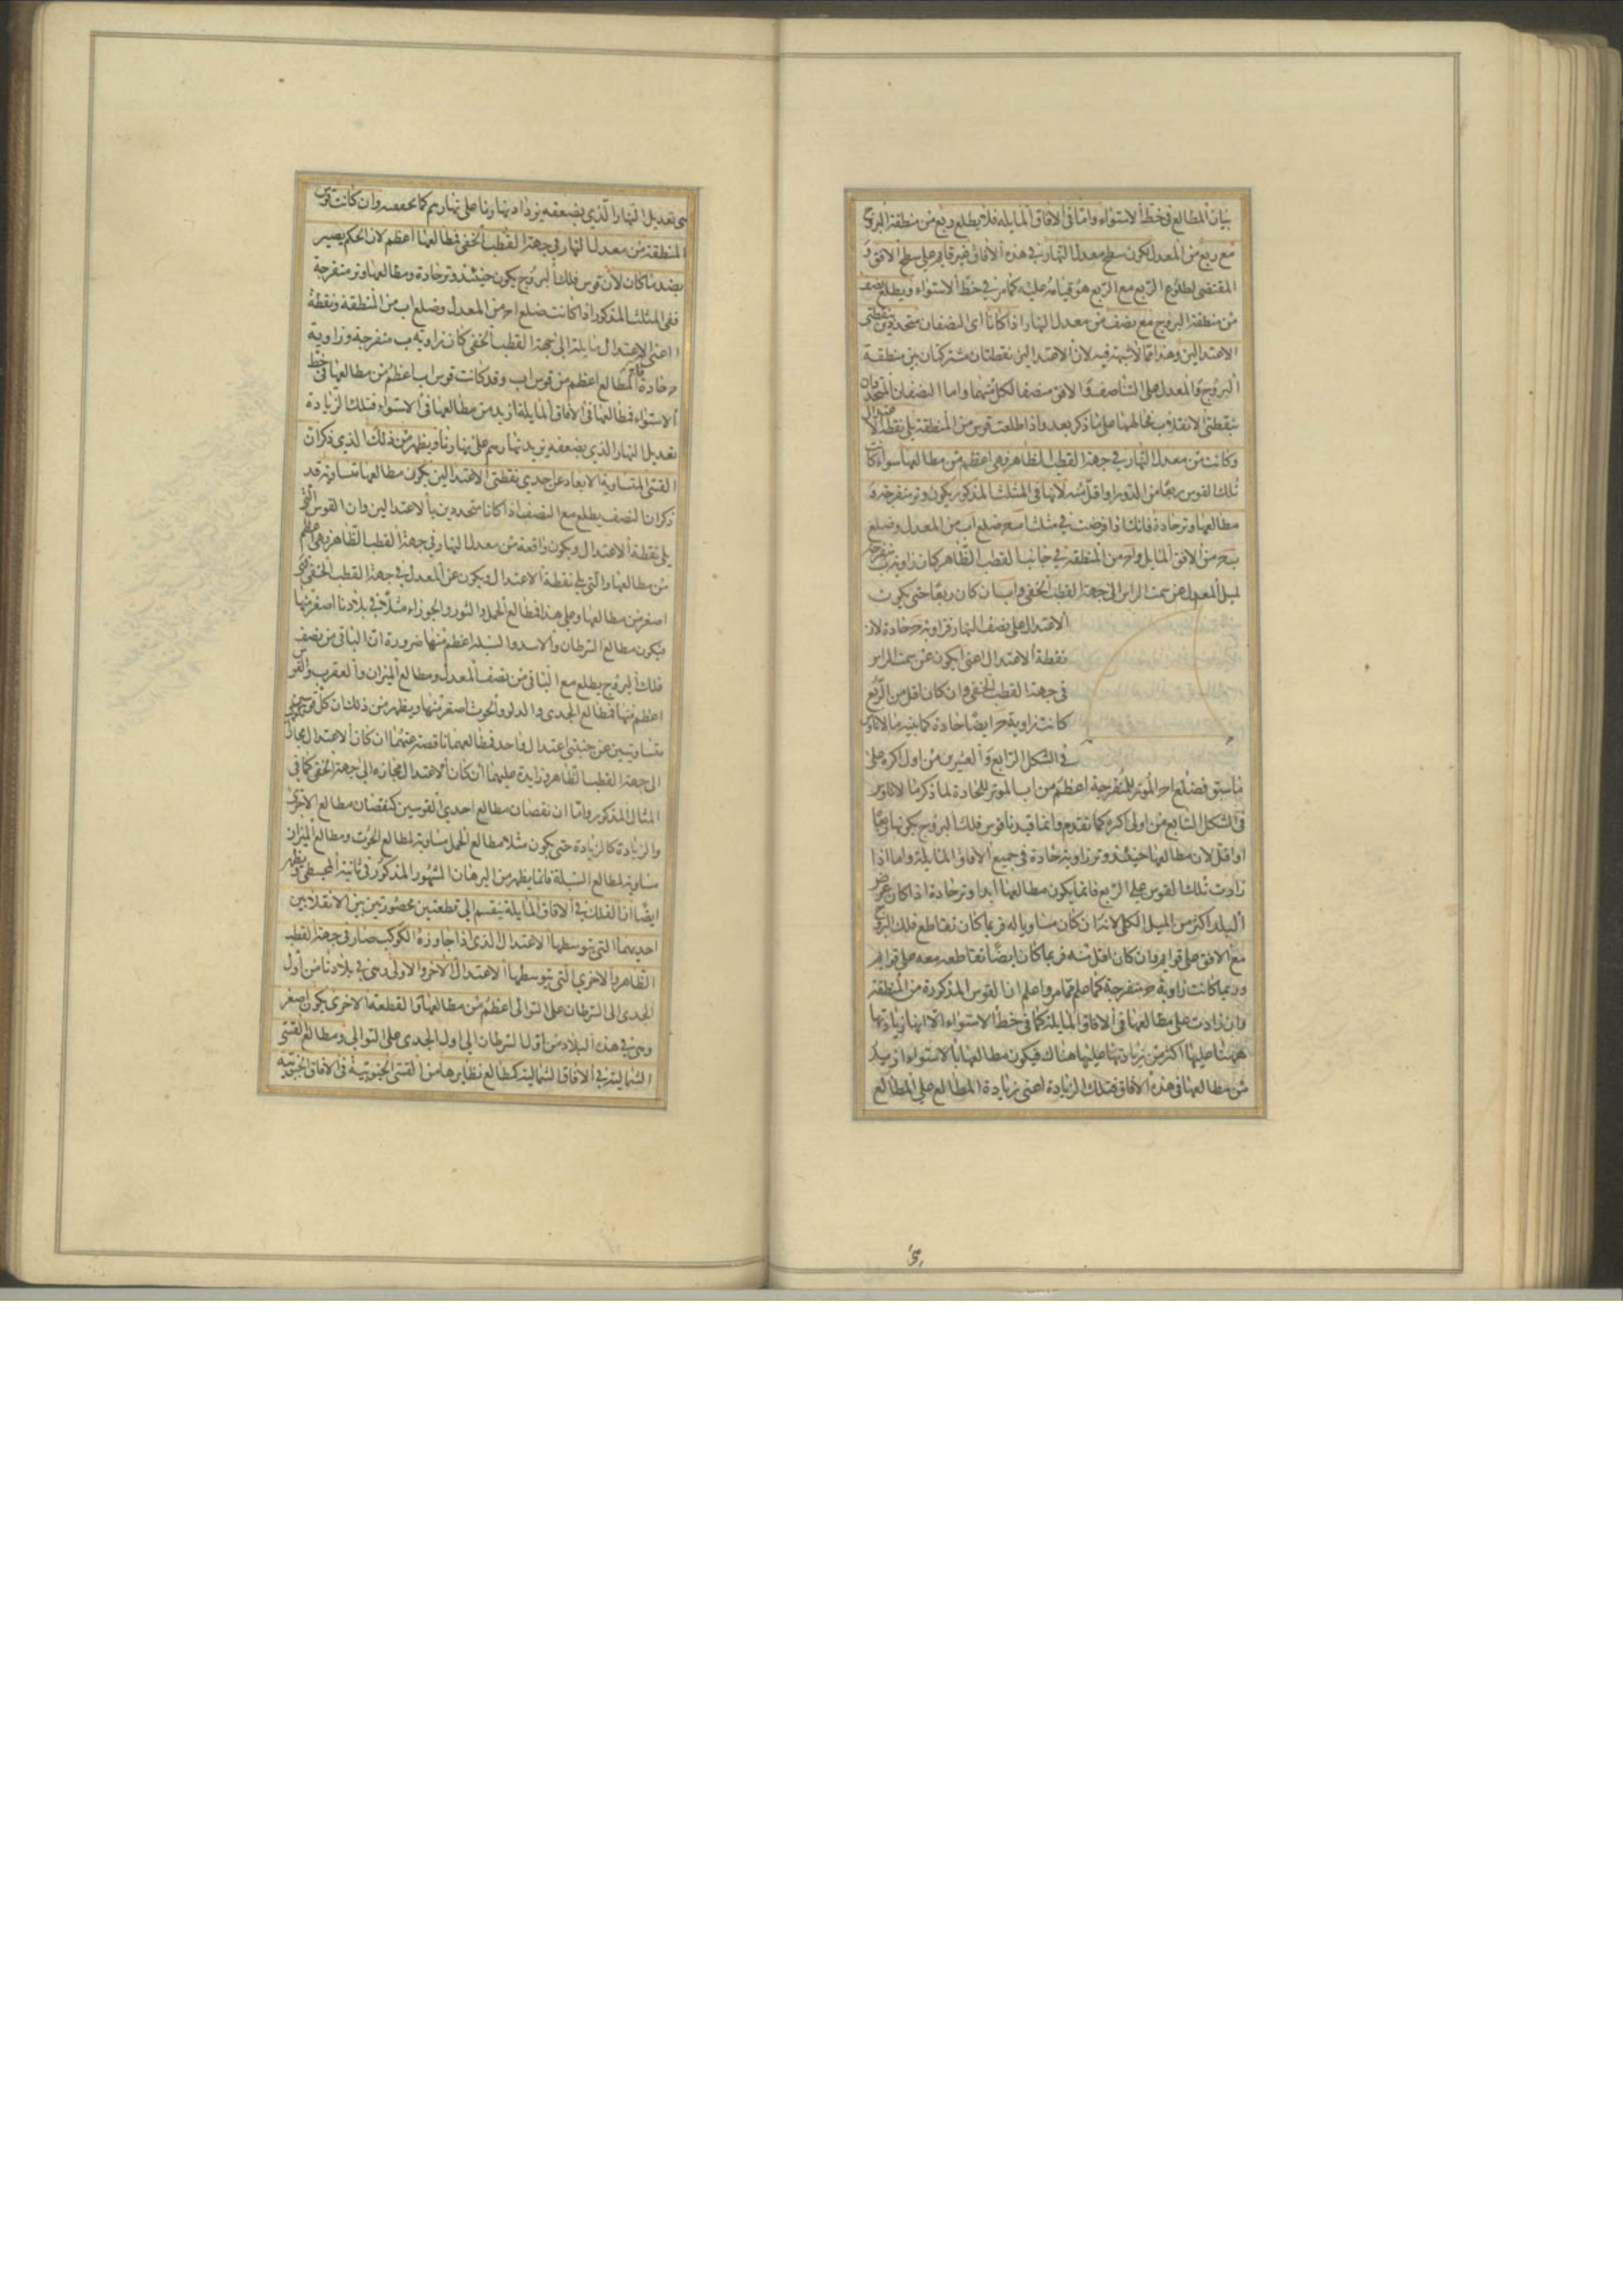 بيان المطالع في خط الاستواء واما في الافاق المايله فلا يطلع ربع من منطقة البروج
مع ربع من المعدل لكون سطح معدل النهار في هذه الافاق غير قايم على سطح الافق و
المقتضى لطلوع الربع مع الربع هو قيامه عليه كما مر في خط الاستواء ويطلع نصف
من منطقة البروج مع نصف من معدل النهار اذا كانا اى النصفان متحددين بنقطتى
الاعتدالين وهذا مما لا شبهة فيه لان الاعتدالين نقطتان مشتركتان بين منطقة
البروج والمعدل على التناصف والافق منصف لكل منهما واما النصفان المتحددان
بنقطتى الانقلاب فحالهما على ما ذكر بعد واذا طلعت قوس من المنطقة يلى نقطة الاعتدال
وكانت من معدل النهار في جهة القطب الظاهر فهى اعظم من مطالعها سواء كانت
تلك القوس ربعا من الدور او اقل منه لانها في المثلث المذكور يكون وتر منفرجة و
مطالعها وتر حادة فانك اذا فرضت في مثلث ا ب ح ضلع ا ب من المعدل وضلع
ب ح من الافق المايل و ا ح من المنطقة في جانب القطب الظاهر كان زاوية ب منفرجة
لميل المعدل عن سمت الراس الى جهة القطب الخفى و ا ب ان كان ربعا حتى يكون
الاعتدال على نصف النهار فزاوية ح حادة لان
نقطة الاعتدال اعنى ا يكون عن سمت الراس
في جهة القطب الخفى وان كان اقل من الربع
كانت زاوية ح ايضا حادة كما بينه مالاناوس
في الشكل الرابع والعشرين من اولى اكره على
ما سبق فضلع ا ح الموتر للمنفرجة اعظم من ا ب الموتر للحادة لما ذكر مالاناوس
في الشكل السابع من اولى اكره كما تقدم وانما قيدنا قوس فلك البروج بكونها ربعا
او اقل لان مطالعها حينئذ وتر زاوية حادة في جميع الافاق المايلة واما اذا
زادت تلك القوس على الربع فانما يكون مطالعها ابدا وتر حادة اذا كان عرض
البلد اكثر من الميل الكلى لانه ان كان مساويا له فربما كان تقاطع فلك البروج
مع الافق على قوايم وان كان اقل منه فربما كان ايضا تقاطعه معه على قوايم
وربما كانت زاوية ح منفرجة كما علم مما مر واعلم ان القوس المذكورة من المنطقة
وان زادت على مطالعها في الافاق المايلة كما في خط الاستواء الا انها زيادتها
ههنا عليها اكثر من زيادتها عليها هناك فيكون مطالعها بالاستواء ازيد
من مطالعها في هذه الافاق فتلك الزيادة اعنى زيادة المطالع على المطالع
هى تعديل النهار الذي بضعفه يزداد نهارنا على نهارهم كما تحققته وان كانت قوس
المنطقة من معدل النهار في جهة القطب الخفى فمطالعها اعظم لان الحكم يصير
بضد ما كان لان قوس فلك البروج يكون حينئذ وتر حادة ومطالعها وتر منفرجة
ففى المثلث المذكور اذا كانت ضلع ا ح من المعدل وضلع ا ب من المنطقة ونقطة
ا اعنى الاعتدال مايلة الى جهة القطب الخفى كان زاوية ب منفرجة وزاوية
ح حادة فا ح المطالع اعظم من قوس ا ب وقد كانت قوس ا ب اعظم من مطالعها في خط
الاستواء فمطالعها في الافاق المايلة ازيد من مطالعها في الاستواء فتلك الزيادة
تعديل النهار الذي بضعفه يزيد نهارهم على نهارنا ويظهر من ذلك الذي ذكر ان
القسى المتساوية الابعاد عن احدي نقطتى الاعتدالين يكون مطالعها متساوية قد
ذكر ان النصف يطلع مع النصف اذا كانا متحددين بالاعتدالين وان القوس التى
يلى نقطة الاعتدال ويكون واقعة من معدل النهار في جهة القطب الظاهر فهى اعظم
من مطالعها والتى يلى نقطة الاعتدال ويكون عن المعدل في جهة القطب الخفى فهى
اصغر من مطالعها وعلى هذا فمطالع الحمل والثور والجوزاء مثلا في بلادنا اصغر منها
فيكون مطالع السرطان والاسد والسنبلة اعظم منها ضرورة ان الباقى من نصف
فلك البروج يطلع مع الباقى من نصف المعدل ومطالع الميزان والعقرب والقوس
اعظم منها فمطالع الجدى والدلو والحوت اصغر منها ويظهر من ذلك ان كل قوسين
متساويتين عن جنبتى اعتدال واحد فمطالعهما ناقصة عنهما ان كان الاعتدال مجازه
الى جهة القطب الظاهر وزايدة عليهما ان كان الاعتدال مجازه الى جهة الخفى كما في
المثال المذكور واما ان نقصان مطالع احدي القوسين كنقصان مطالع الاخرى
والزيادة كالزيادة حتى يكون مثلا مطالع الحمل مساوية لمطالع الحوت ومطالع الميزان
مساوية لمطالع السنبلة فانما يظهر من البرهان المشهور المذكور في ثانية المجسطى ويظهر
ايضا ان الفلك في الافاق المايلة ينقسم الى قطعتين محصورتين بين الانقلابين
احديهما التى يتوسطها الاعتدال الذى اذا جاوزه الكوكب صار في جهة القطب
الظاهر والاخري التى يتوسطها الاعتدال الاخر والاولى وهى في بلادنا من اول
الجدى الى السرطان على التوالى اعظم من مطالعها والقطعة الاخرى يكون اصغر
وهى في هذه البلاد من اول السرطان الى اول الجدى على التوالى ومطالع القسى
الشمالية في الافاق الشمالية كمطالع نظايرها من القسى الجنوبية في الافاق الجنوبية
هى